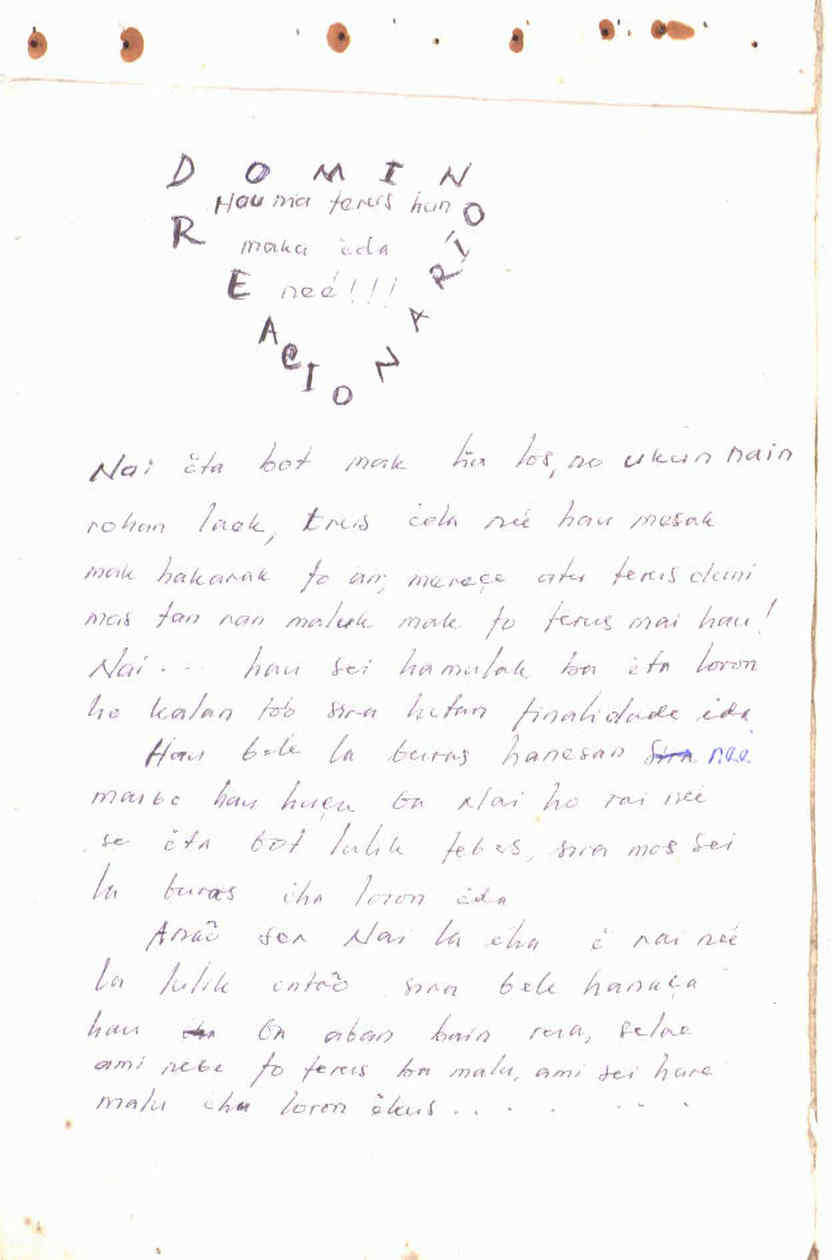 DOMIN
Hau ma terus hun
maka ida
neé!!!
REACIONARÍO
Nai ita bot mak tia los, no ukun nain
rohan laek, terus ida neé hau mesak
mak hakarak fo an, mereçe atu terus duni
mas tan nan maluk mak fo terus mai hau!
Nai... hau sei hamulak ba ita loron
ho kalan tób sira hetan finalidade ida
Hau bele la buras hanesan neé
maibe hau huçu ba Nai ho rai neé
se ita bot lulik tebes, sira mos sei
la buras iha loron ida
Anaõ ser Nai la iha é rai neé
la lulik entaõ sira bele hanuça
hau ba aban bain rua, selae
ami nebe fo terus ba malu, ami sei hare
malu iha loron ikus.. . . . . . .